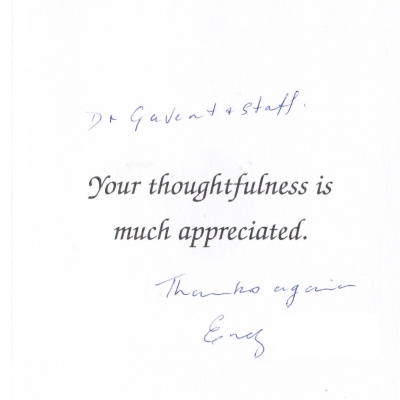 Dr Gavent + staff.
Your thoughtfulness is
much appreciated.
Thanks again